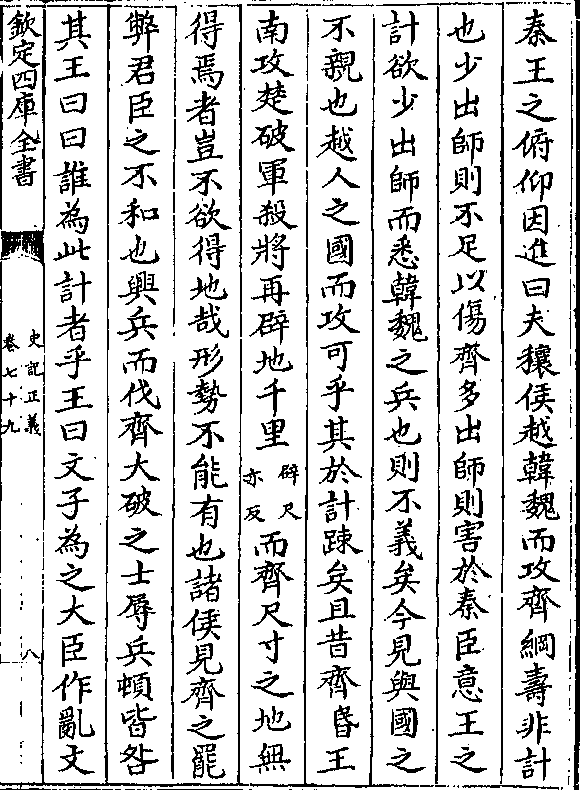 秦王之俯仰因進曰夫穰侯越韓魏而攻齊綱壽非計
也少出師則不足以傷齊多出師則害於秦臣意王之
計欲少出師而悉韓魏之兵也則不義矣今見與國之
不親也越人之國而攻可乎其於計踈矣且昔齊湣王
南攻楚破軍殺將再辟地千里辟尺亦反而齊尺寸之地無
得焉者豈不欲得地哉形勢不能有也諸侯見齊之罷
弊君臣之不和也興兵而伐齊大破之士辱兵頓皆咎
其王曰曰誰為此計者乎王曰文子為之大臣作亂文
欽定四庫全書
史記正義
卷七十九
八